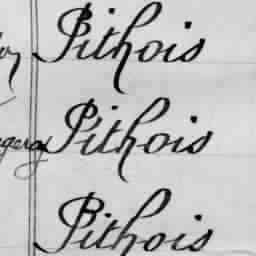 Pithois
Pithois
Pithois